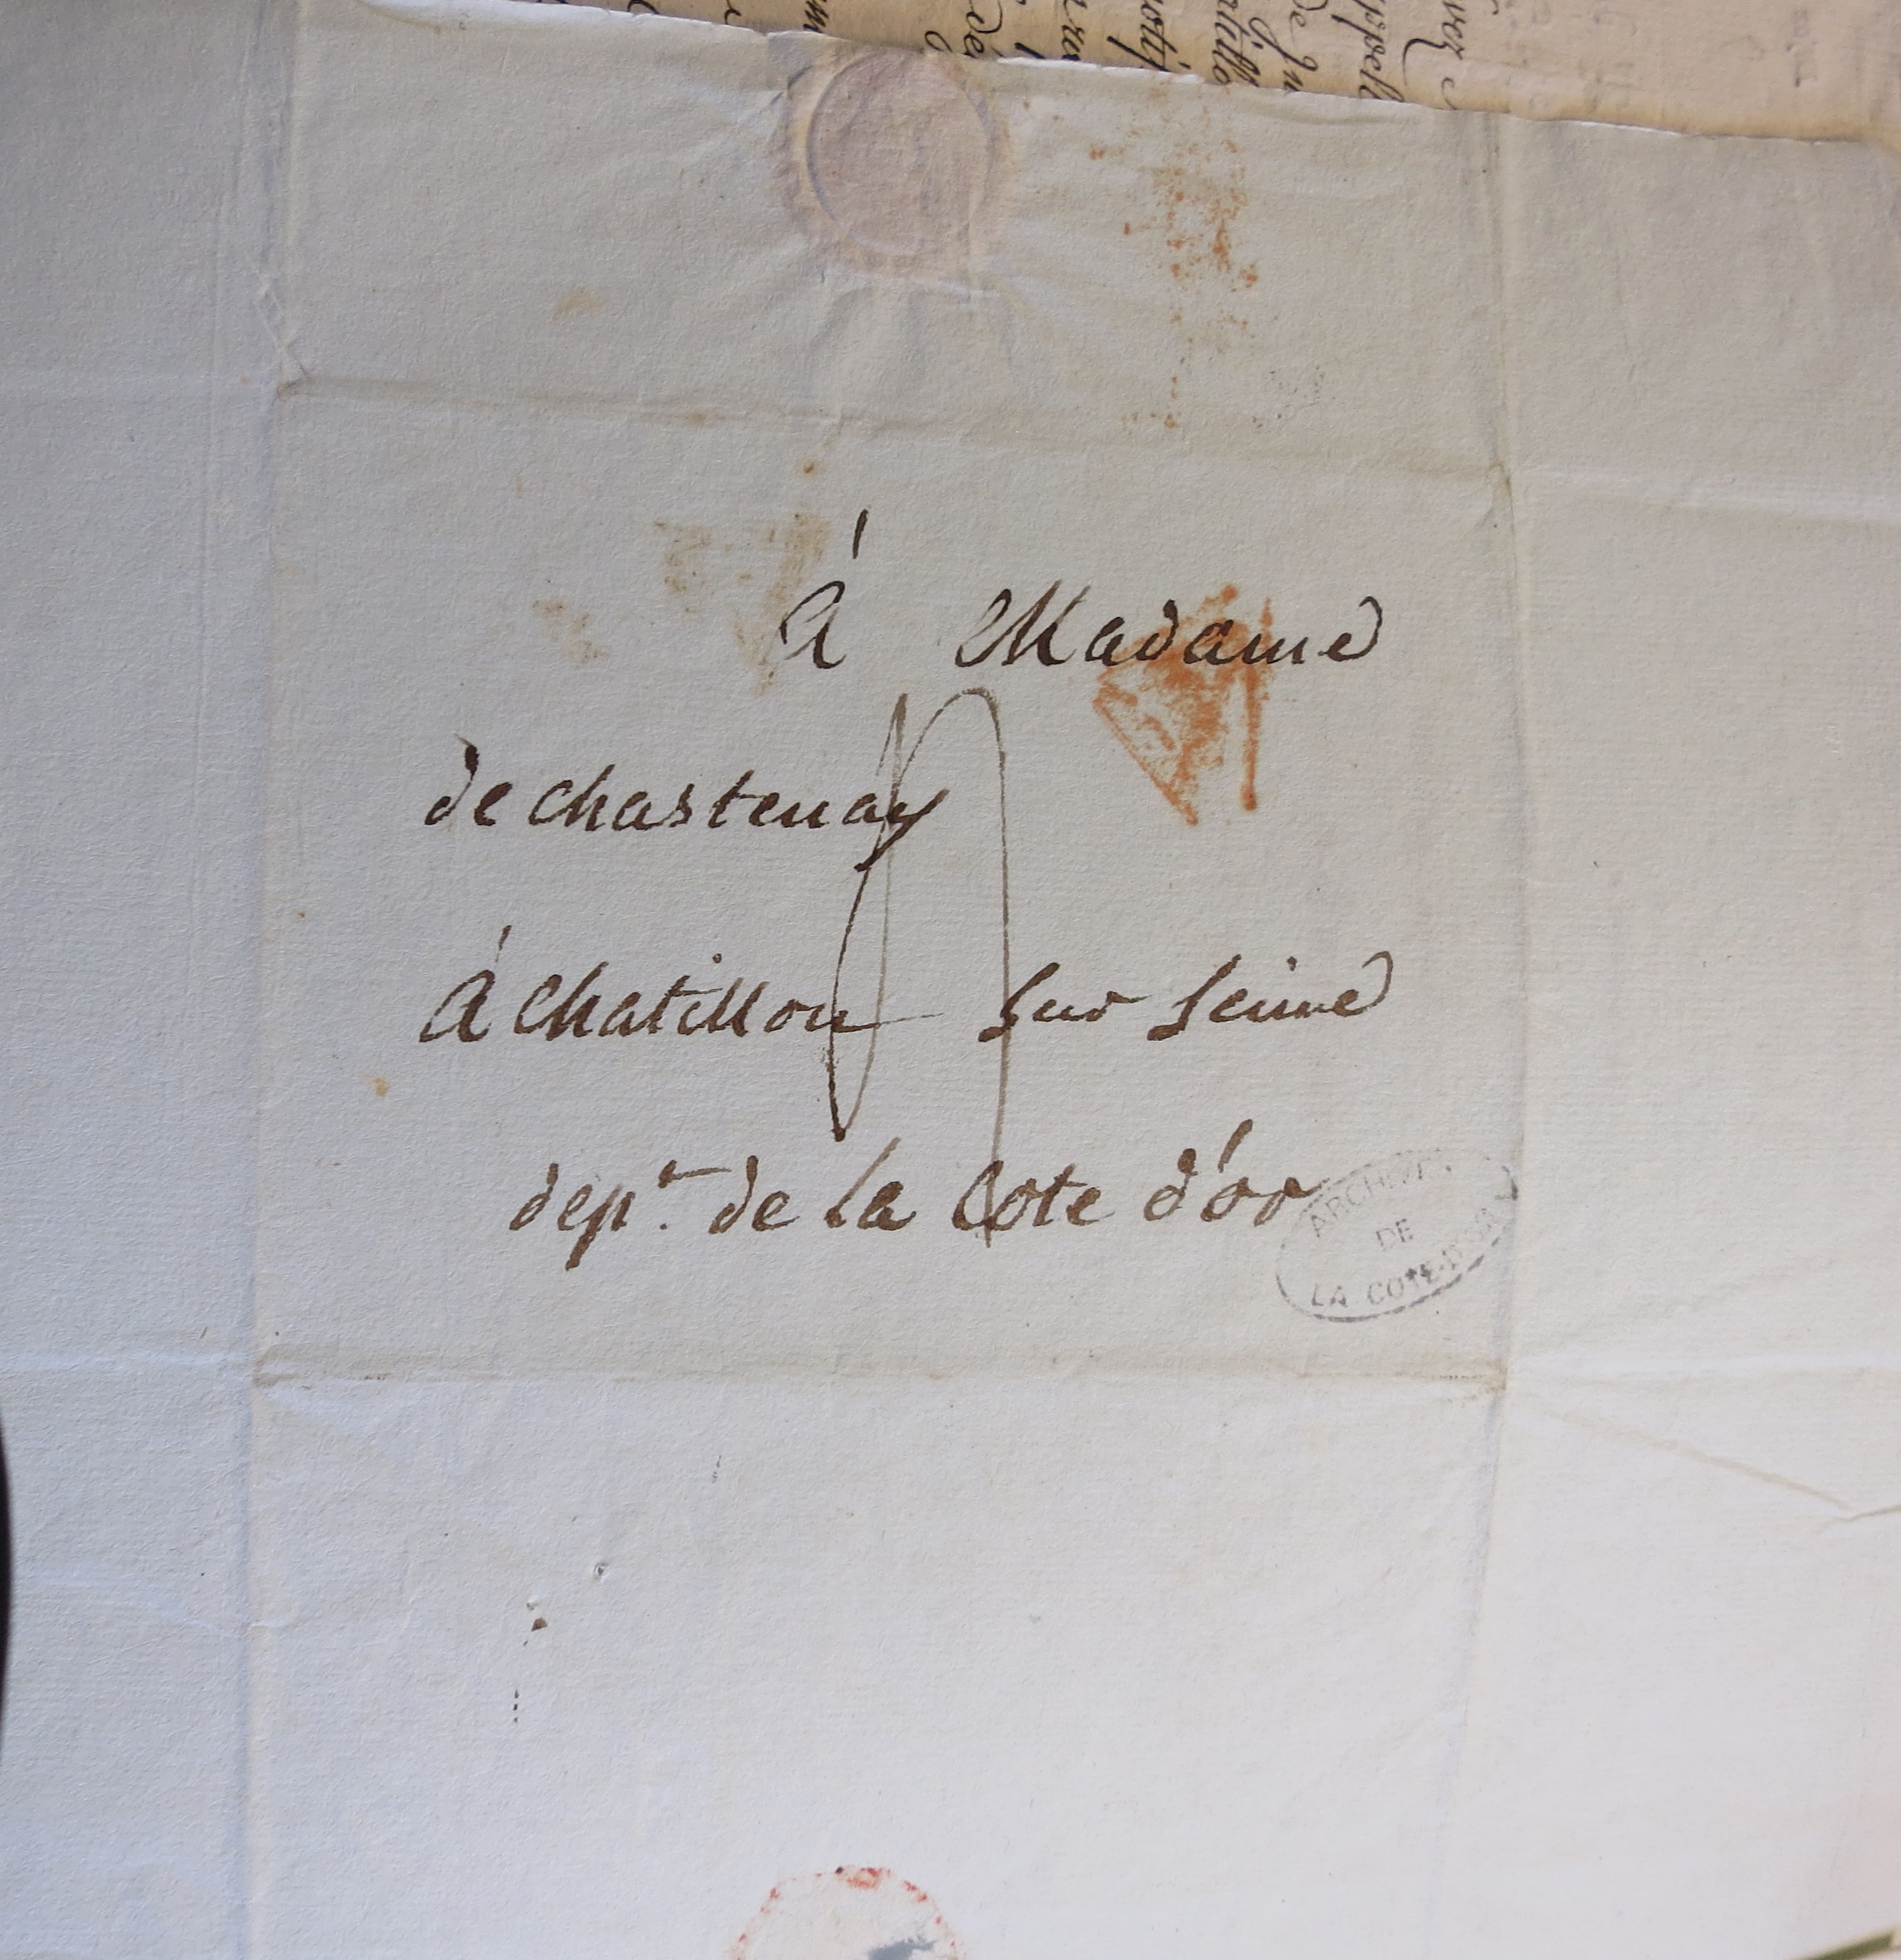 á Madame
de chastenay
á chatillon sur seine
dept. de la cote d'or
ARCHIVES
DE
LA COTE-D'OR